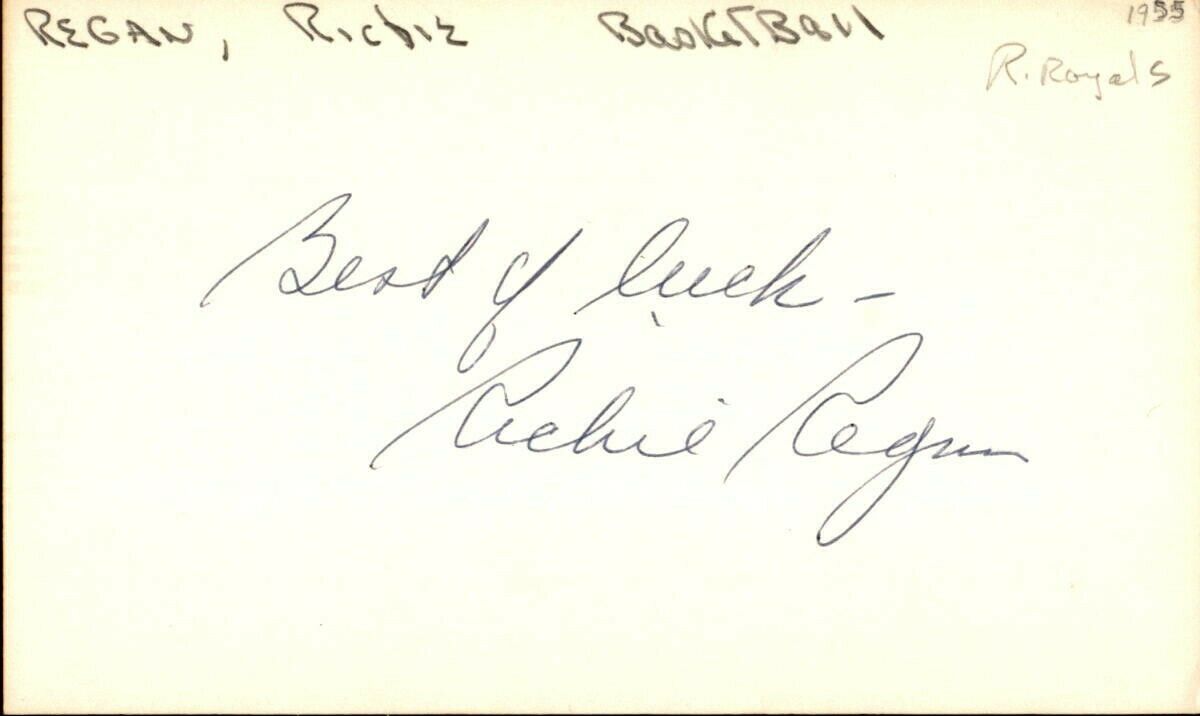 REGAN, Richie BasketBall 1955
R. Royals
Best of luck -
Richie Regan